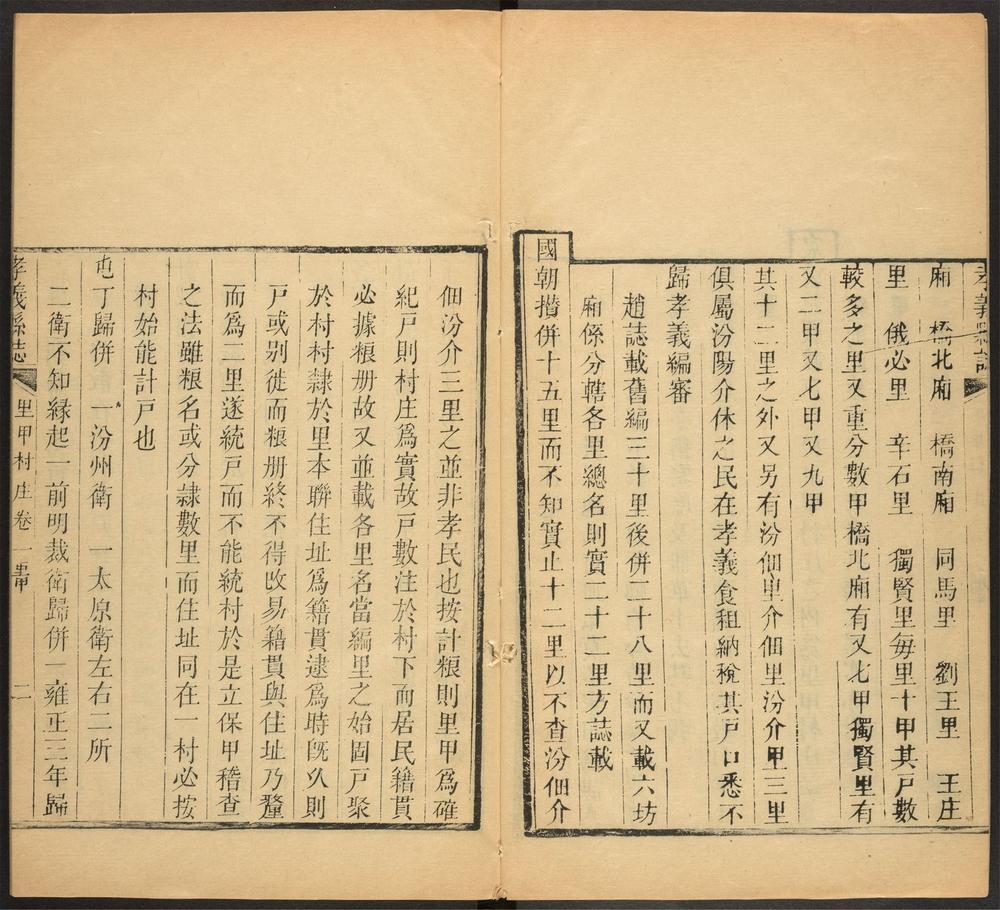 孝義縣誌
廂　橋北廂　橋南廂　同馬里　劉王里　王庄
里　俄必里　辛石里　獨賢里每里十甲其戸數
較多之里又重分數甲橋北廂有又七甲獨賢里有
又二甲又七甲又九甲
其十二里之外又另有汾佃里介佃里汾介甲三里
俱屬汾陽介休之民在孝義食租納稅其戸口悉不
歸孝義編審
趙誌載舊編三十里後併二十八里而又載六坊
廂係分轄各里總名則實二十二里方誌載
國朝攢併十五里而不知實止十二里以不查汾佃介
佃汾介三里之並非孝民也按計粮則里甲爲確
紀戸則村庄爲實故戸數注於村下而居民籍貫
必據粮册故又並載各里名當編里之始固戸聚
於村村隸於里本聯住址爲籍貫逮爲時旣久則
戸或别徙而粮册終不得攺易籍貫與住址乃釐
而爲二里遂統戸而不能統村於是立保甲稽查
之法雖粮名或分隸數里而住址同在一村必按
村始能計戸也
屯丁歸併　一汾州衛　一太原衛左右二所
二衛不知縁起一前明裁衛歸併一雍正三年歸
孝義縣誌
里甲村庄卷一
二